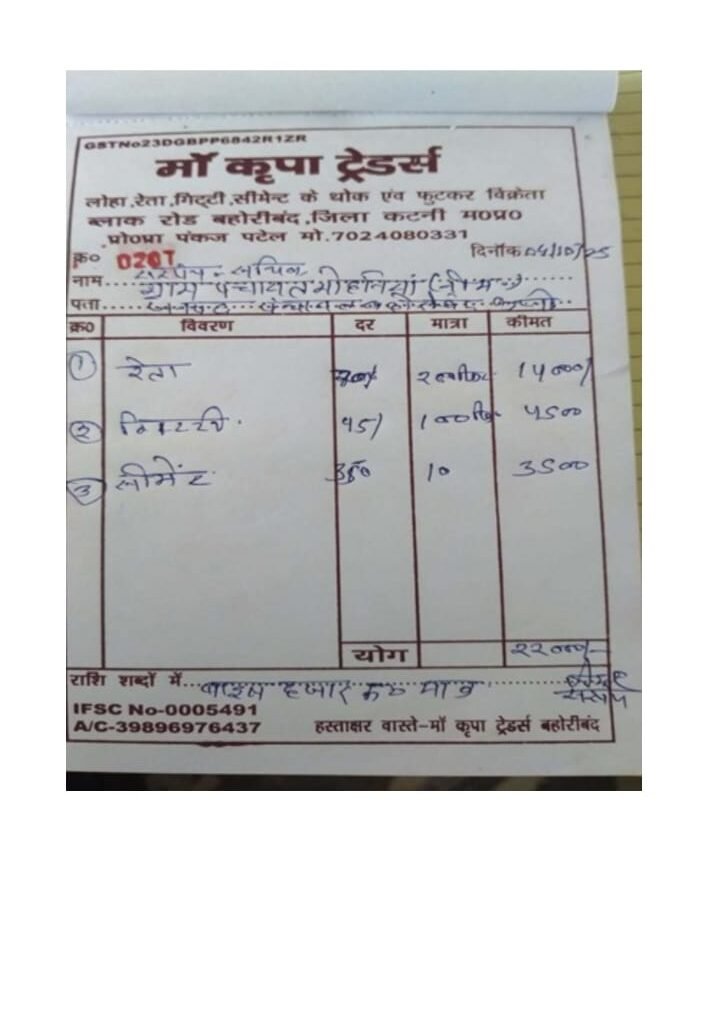 GSTNo23DGBPP6842R1ZR
मॉ कृपा ट्रेडर्स
लोहा,रेता,गिट्टी,सीमेन्ट के थोक एंव फुटकर विक्रेता
ब्लाक रोड बहोरीबंद,जिला कटनी म०प्र०
प्रो०प्रा पंकज पटेल मो.7024080331
क्र० 0207 दिनॉक 04/10/25
सरपंच - सचिव
नाम ग्राम पंचायत मोहनियां
पता
क्र० विवरण दर मात्रा कीमत
1 रेता 14000/
2 गिट्टी 45/ 100 4500
3 सीमेंट 350 10 3500
योग 22000/-
राशि शब्दों में बाइस हजार रु मात्र
IFSC No-0005491
A/C-39896976437 हस्ताक्षर वास्ते-मॉ कृपा ट्रेडर्स बहोरीबंद